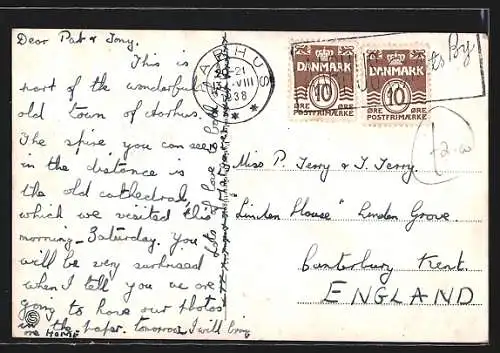 Dear Pat & Tony.
This is
part of the wonderful
old town of Aarhus.
The spire you can see
in the distance is
the old cathedral,
which we visited this
morning - Saturday. You
will be very surprised
when I tell you we are
going to have our photos
in the paper. tomorrow I will bring
one HOME.
Lots of love to both
AARHUS
20-21
VIII
1938
DANMARK
10
ØRE ØRE
POSTFRIMÆRKE
DANMARK
10
ØRE ØRE
POSTFRIMÆRKE
By
Miss P. Terry & T. Terry.
"Linden House" Linden Grove
Canterbury Kent.
ENGLAND